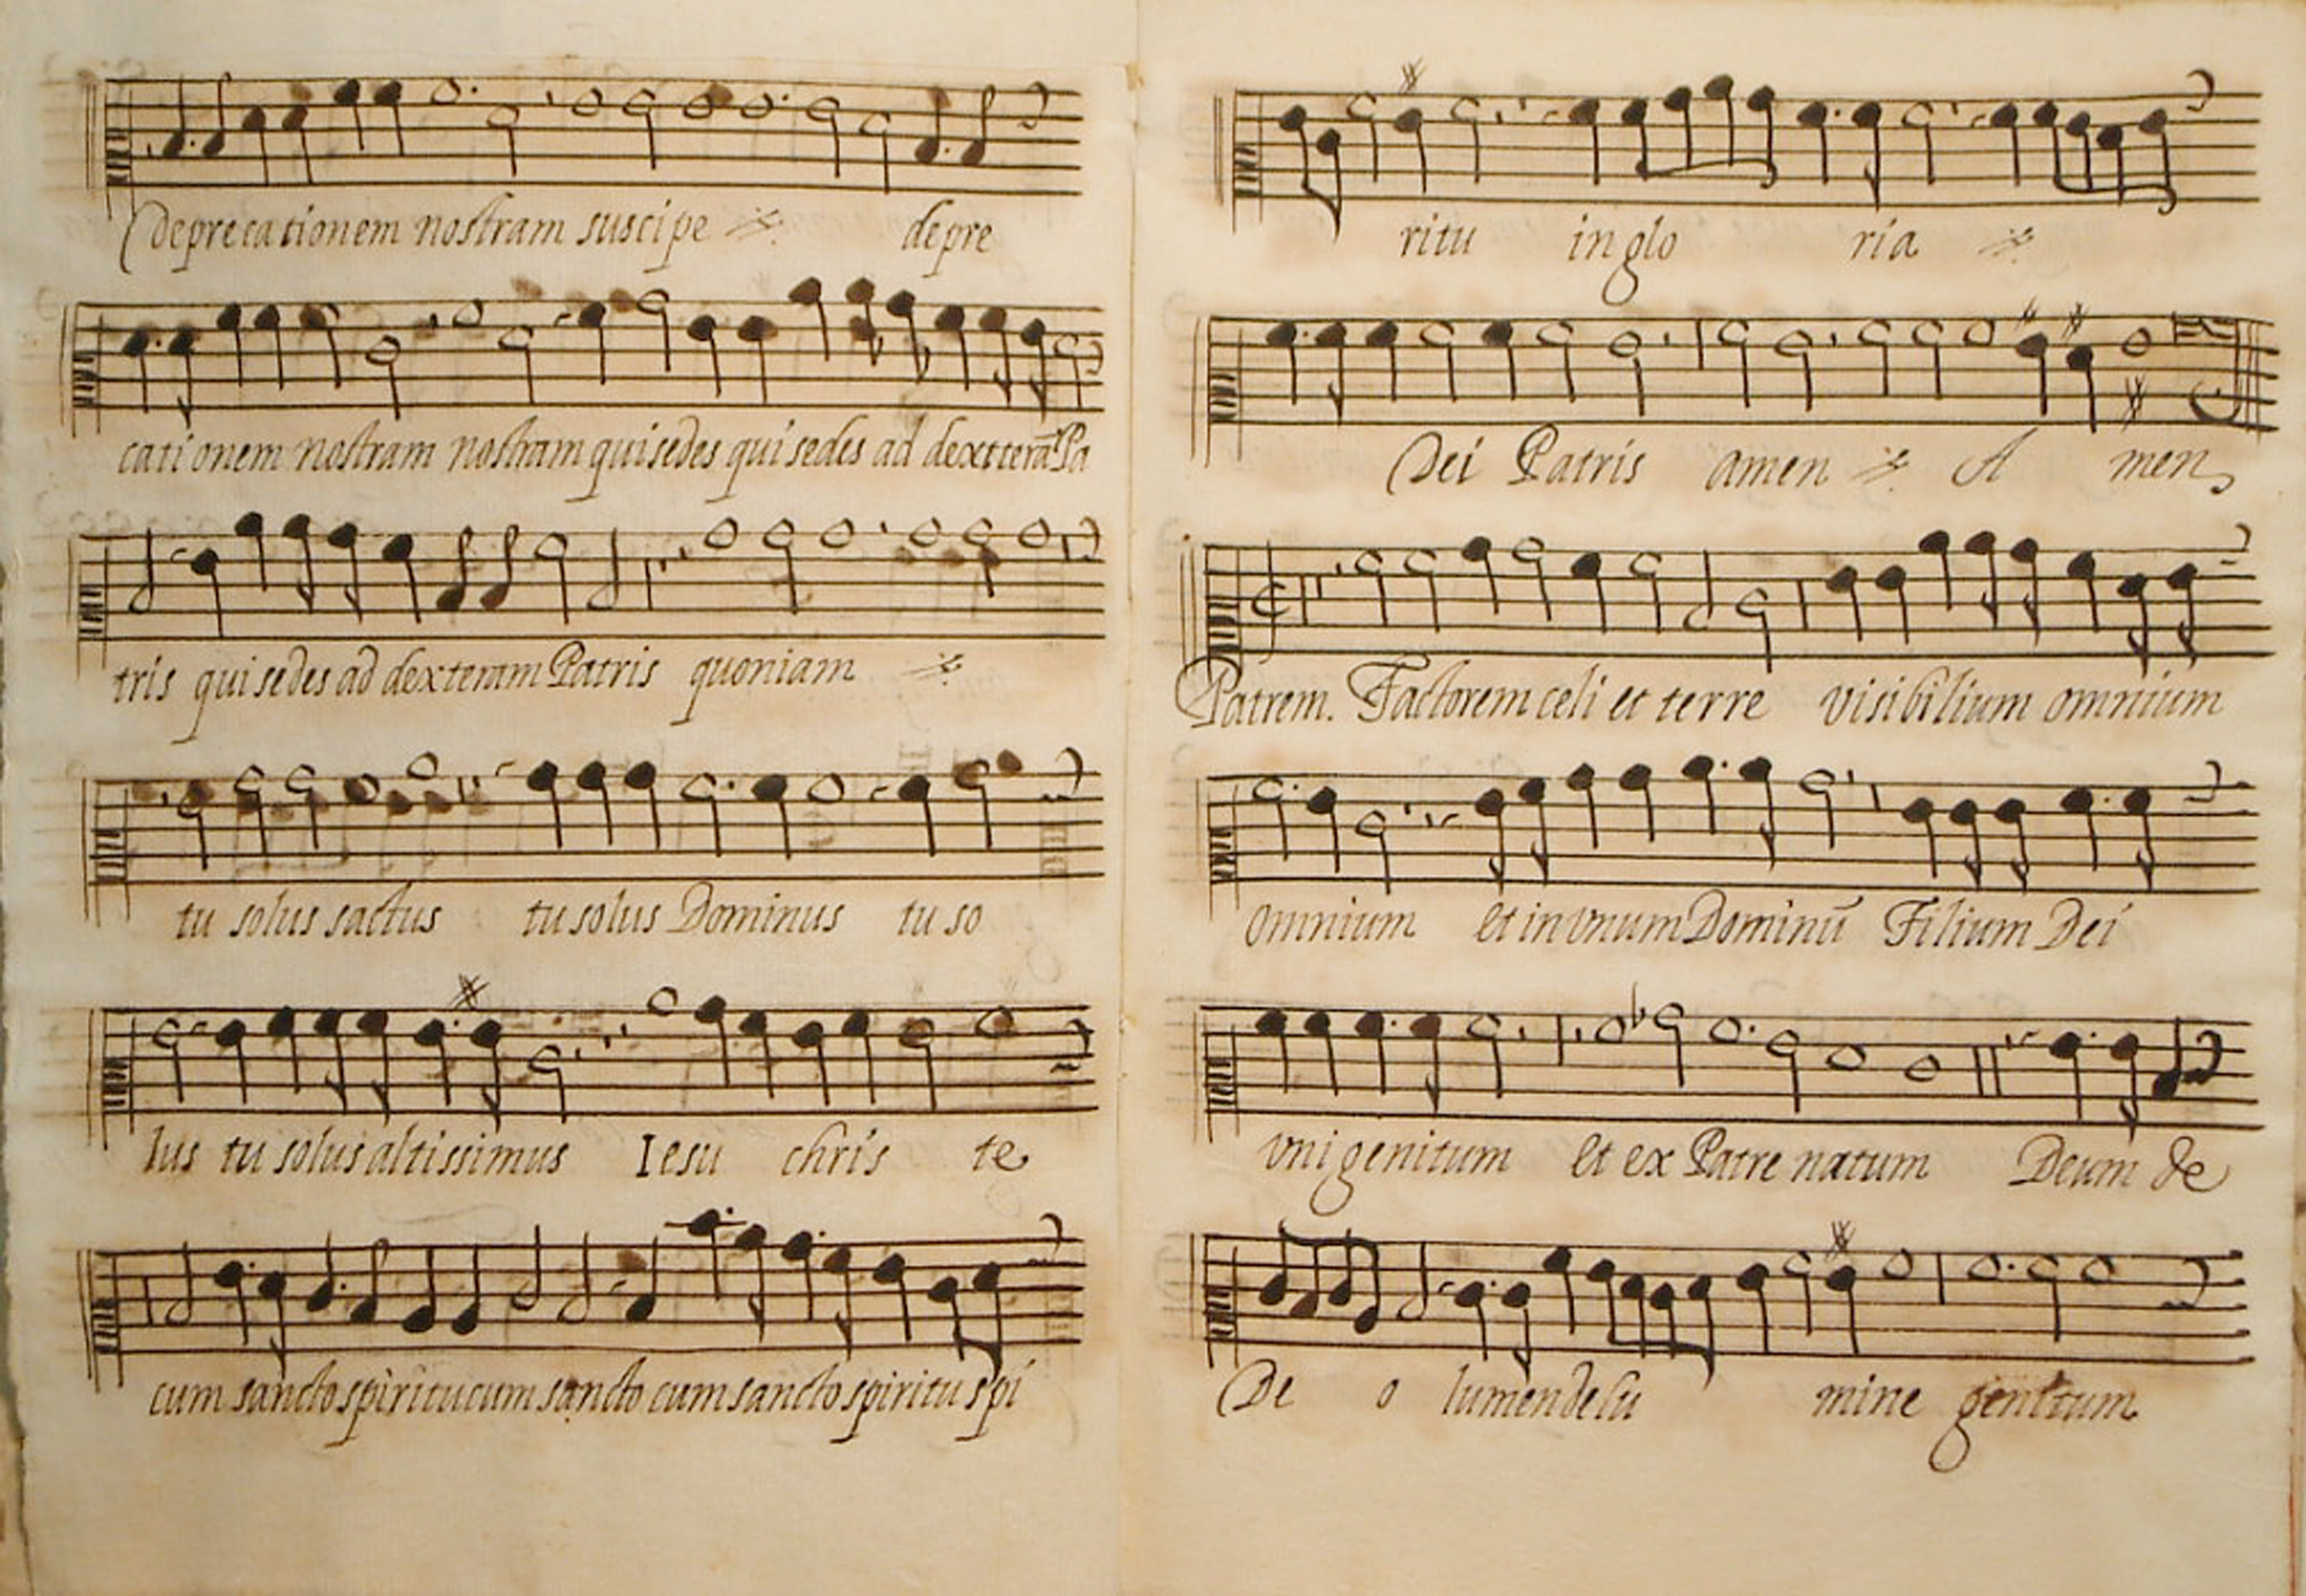 Deprecationem nostram suscipe depre
cationem nostram nostram qui sedes qui sedes ad dextterā Pa
tris qui sedes ad dexteram Patris quoniam
tu solus sactus tu solus Dominus tu so
lus tu solus altissimus Iesu chris te
cum sancto spiritu cum sancto cum sancto spiritu spi
ritu in glo ria
Dei Patris amen A men
Patrem. Factorem celi et terre visibilium omnium
omnium et in vnum Dominū Filium Dei
vnigenitum et ex Patre natum Deum de
De o lumen de lu mine genitum